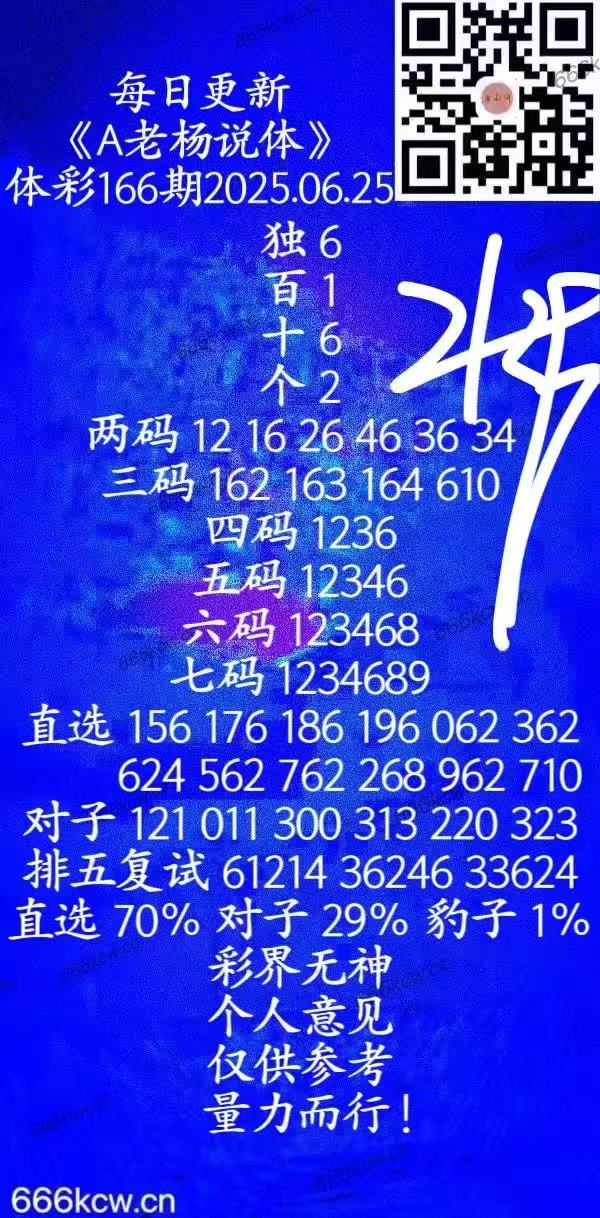 每日更新
《A老杨说体》
体彩166期2025.06.25
独 6
百 1
十 6
个 2
两码 12 16 26 46 36 34
三码 162 163 164 610
四码 1236
五码 12346
六码 123468
七码 1234689
直选 156 176 186 196 062 362
624 562 762 268 962 710
对子 121 011 300 313 220 323
排五复试 61214 36246 33624
直选 70% 对子 29% 豹子 1%
彩界无神
个人意见
仅供参考
量力而行！
666kcw.cn